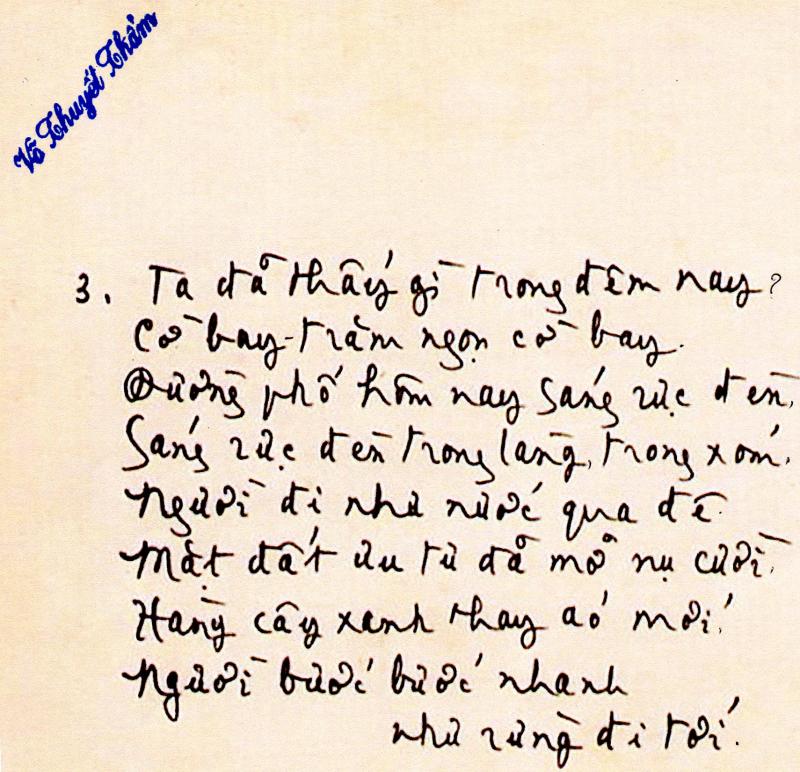 Võ Thuyết Thắm
3. Ta đã thấy gì trong đêm nay?
Cờ bay - trăm ngọn cờ bay.
Đường phố hôm nay sáng rực đèn,
Sáng rực đèn trong làng, trong xóm.
Người đi như nước qua đê
Mặt đất ưu tư đã mở nụ cười.
Hàng cây xanh thay áo mới.
Người bước bước nhanh
như rừng đi tới.